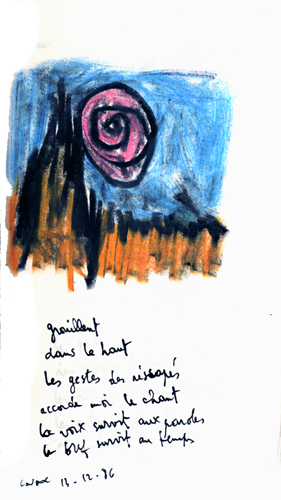 graillent
dans le haut
les gestes des réscapés
accorde moi le chant
la voix survit aux paroles
le survit au temps
13-12-96